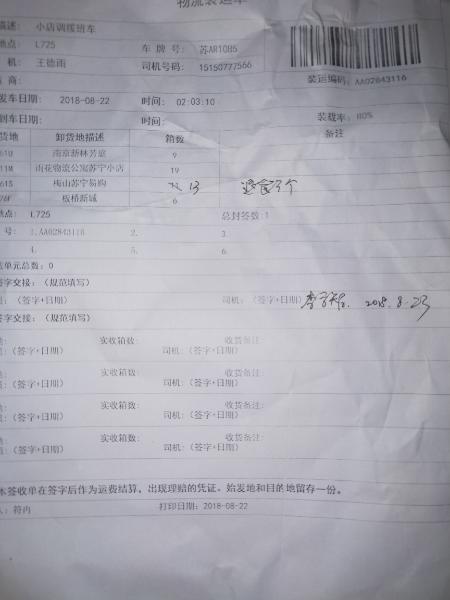 物流装运单
描述: 小店调缓班车
地点: L725 车 牌 号: 苏AR1085
机: 王德雨 司机号码: 15150777566
商: 装运编码: AA02843116
发车日期: 2018-08-22 时间: 02:03:10
到车日期: 时间: 装载率: 80%
货地 卸货地描述 箱数 备注
南京新林芳庭 9
雨花物流公寓苏宁小店 19
梅山苏宁易购 13
板桥新城 6
地点: L725 总封签数:1
号: 1.AA02843116 2. 3.
4. 5. 6.
单元总数: 0
签字交接: (规范填写)
(签字+日期) 司机: (签字+日期) 2018.8.23
签字交接: (规范填写)
实收箱数: 收货备注:
(签字+日期) 司机: (签字+日期)
实收箱数: 收货备注:
(签字+日期) 司机: (签字+日期)
实收箱数: 收货备注:
(签字+日期) 司机: (签字+日期)
实收箱数: 收货备注:
(签字+日期) 司机: (签字+日期)
本签收单在签字后作为运费结算，出现理赔的凭证。始发地和目的地留存一份。
人: 符冉 打印日期: 2018-08-22